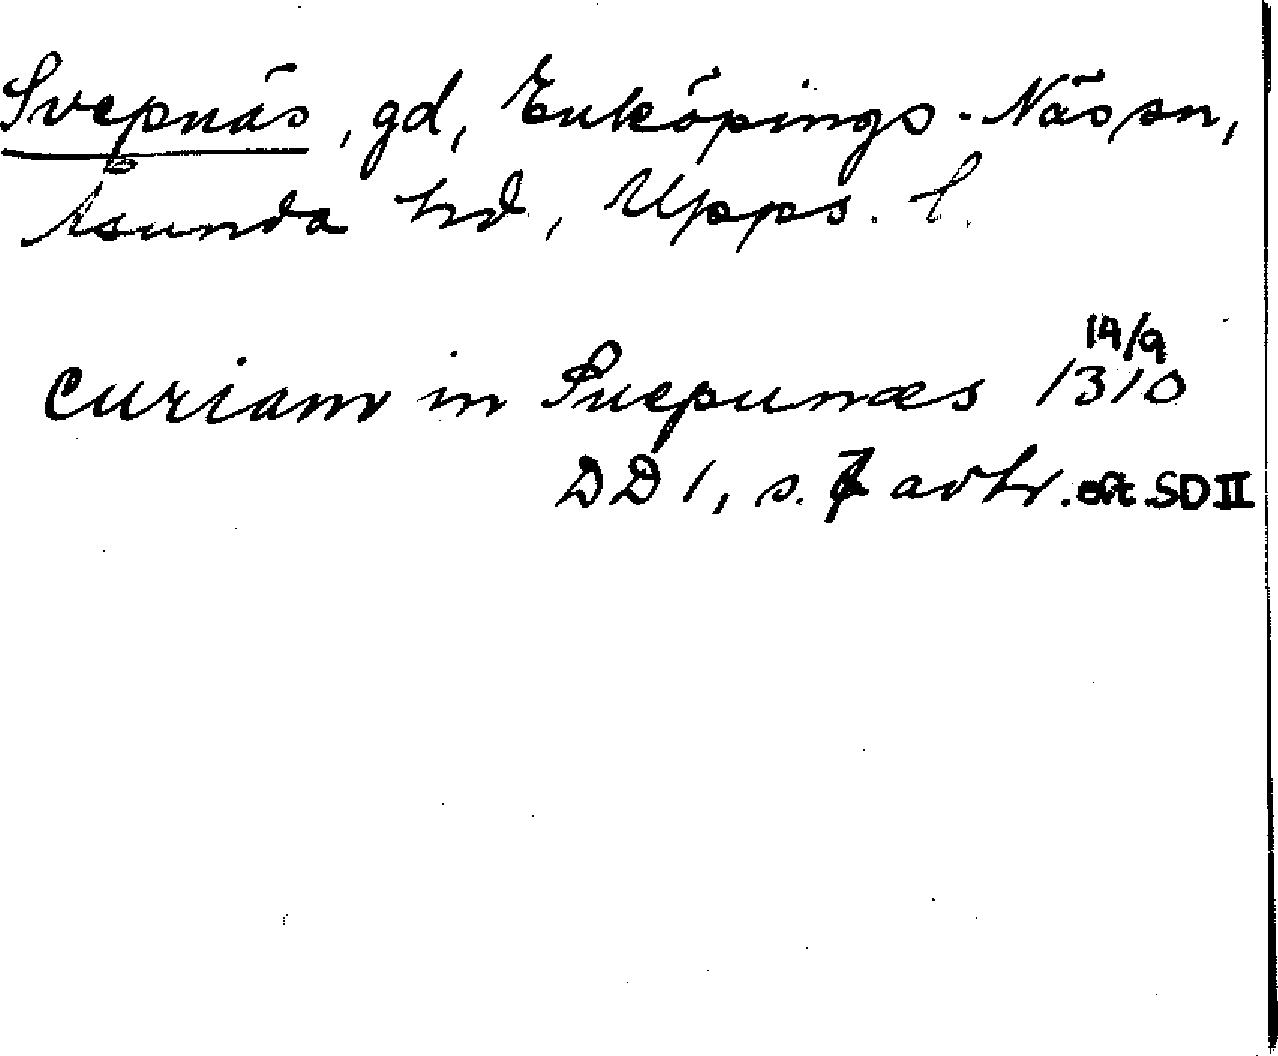 Svepnäs, gd, Enköpings-Näs sn,
Åsunda hd, Upps. l.
curiam in Suepunæs 14/9 1310
DD 1, s. 7 avtr. eft. SD II